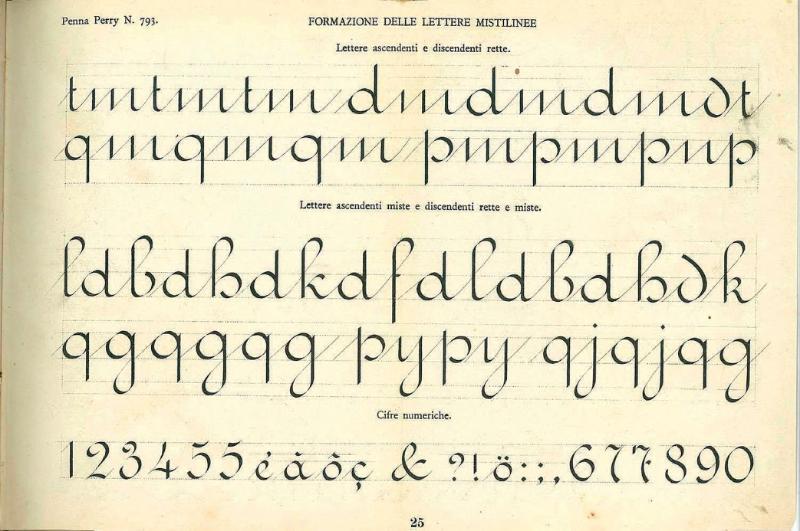 Penna Perry N. 793.
FORMAZIONE DELLE LETTERE MISTILINEE
Lettere ascendenti e discendenti rette.
tmtmtm dmdmdmdt
qmqmqm pmpmpnp
Lettere ascendenti miste e discendenti rette e miste.
ldbdhdkdfdldbdhdk
qgqgqg pypy qjqjqg
Cifre numeriche.
123455 éàôç & ?!ö:;,677890
25